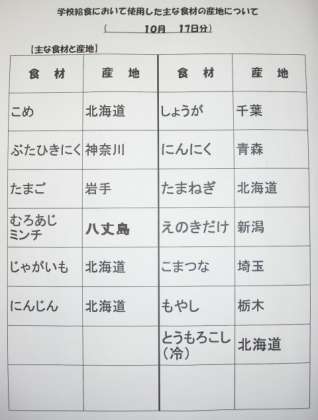 学校給食において使用した主な食材の産地について
(　10月　17日分)
【主な食材と産地】
食　材　産　地　食　材　産　地
こめ　北海道　しょうが　千葉
ぶたひきにく　神奈川　にんにく　青森
たまご　岩手　たまねぎ　北海道
むろあじ
ミンチ　八丈島　えのきだけ　新潟
じゃがいも　北海道　こまつな　埼玉
にんじん　北海道　もやし　栃木
とうもろこし
(冷)　北海道